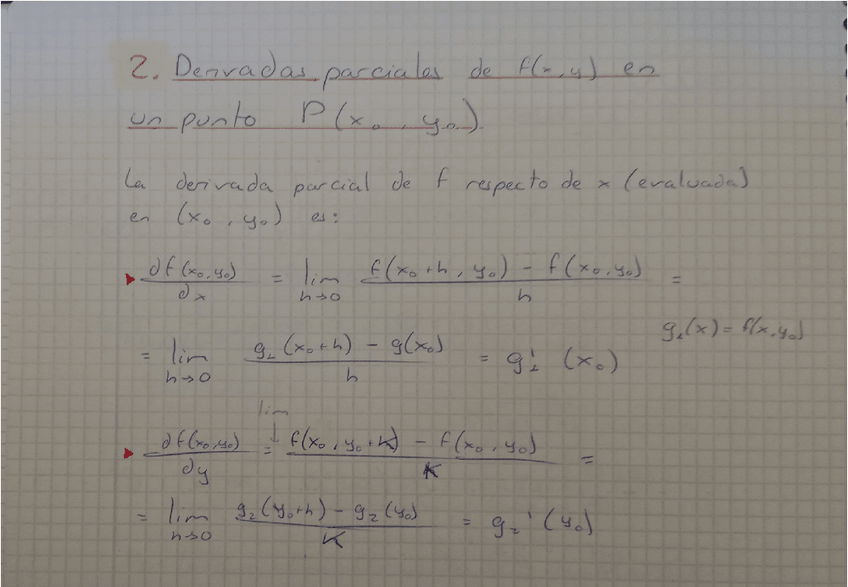 2. Derivadas parciales de f(x,y) en
un punto P(x₀, y₀)
La derivada parcial de f respecto de x (evaluada)
en (x₀, y₀) es:
▶ ∂f(x₀,y₀)/∂x = lim h→0 (f(x₀+h, y₀) - f(x₀,y₀))/h =
g₁(x) = f(x,y₀)
= lim h→0 (g₁(x₀+h) - g(x₀))/h = g₁'(x₀)
lim
▶ ∂f(x₀,y₀)/∂y = (f(x₀, y₀+k) - f(x₀, y₀))/k =
= lim h→0 (g₂(y₀+h) - g₂(y₀))/k = g₂'(y₀)